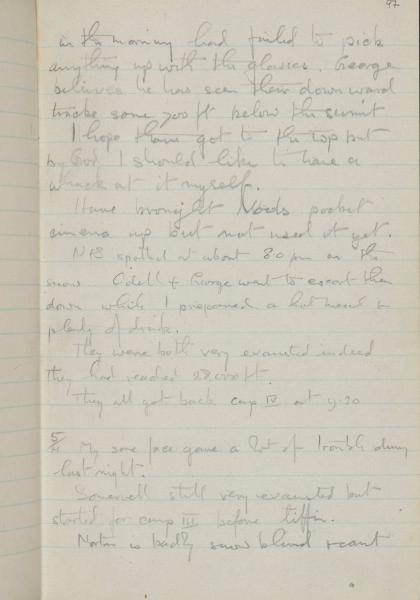 97
in the morning had failed to pick
anything up with the glasses. George
believes he has seen their downward
tracks some 700 ft below the summit
I hope they've got to the top but
by God I should like to have a
whack at it myself.
Have brought Noel's pocket
cinema up but not used it yet.
N & S spotted at about 8.0 pm on the
snow Odell & George went to escort them
down while I prepared a hot meal &
plenty of drink.
They were both very exhausted indeed
they had reached 28,000 ft.
They all got back camp IV at 9.30
5/VI My sore face gave a lot of trouble during
last night.
Somervell still very exhausted but
started for camp III before tiffin.
Norton is badly snow blind & cant